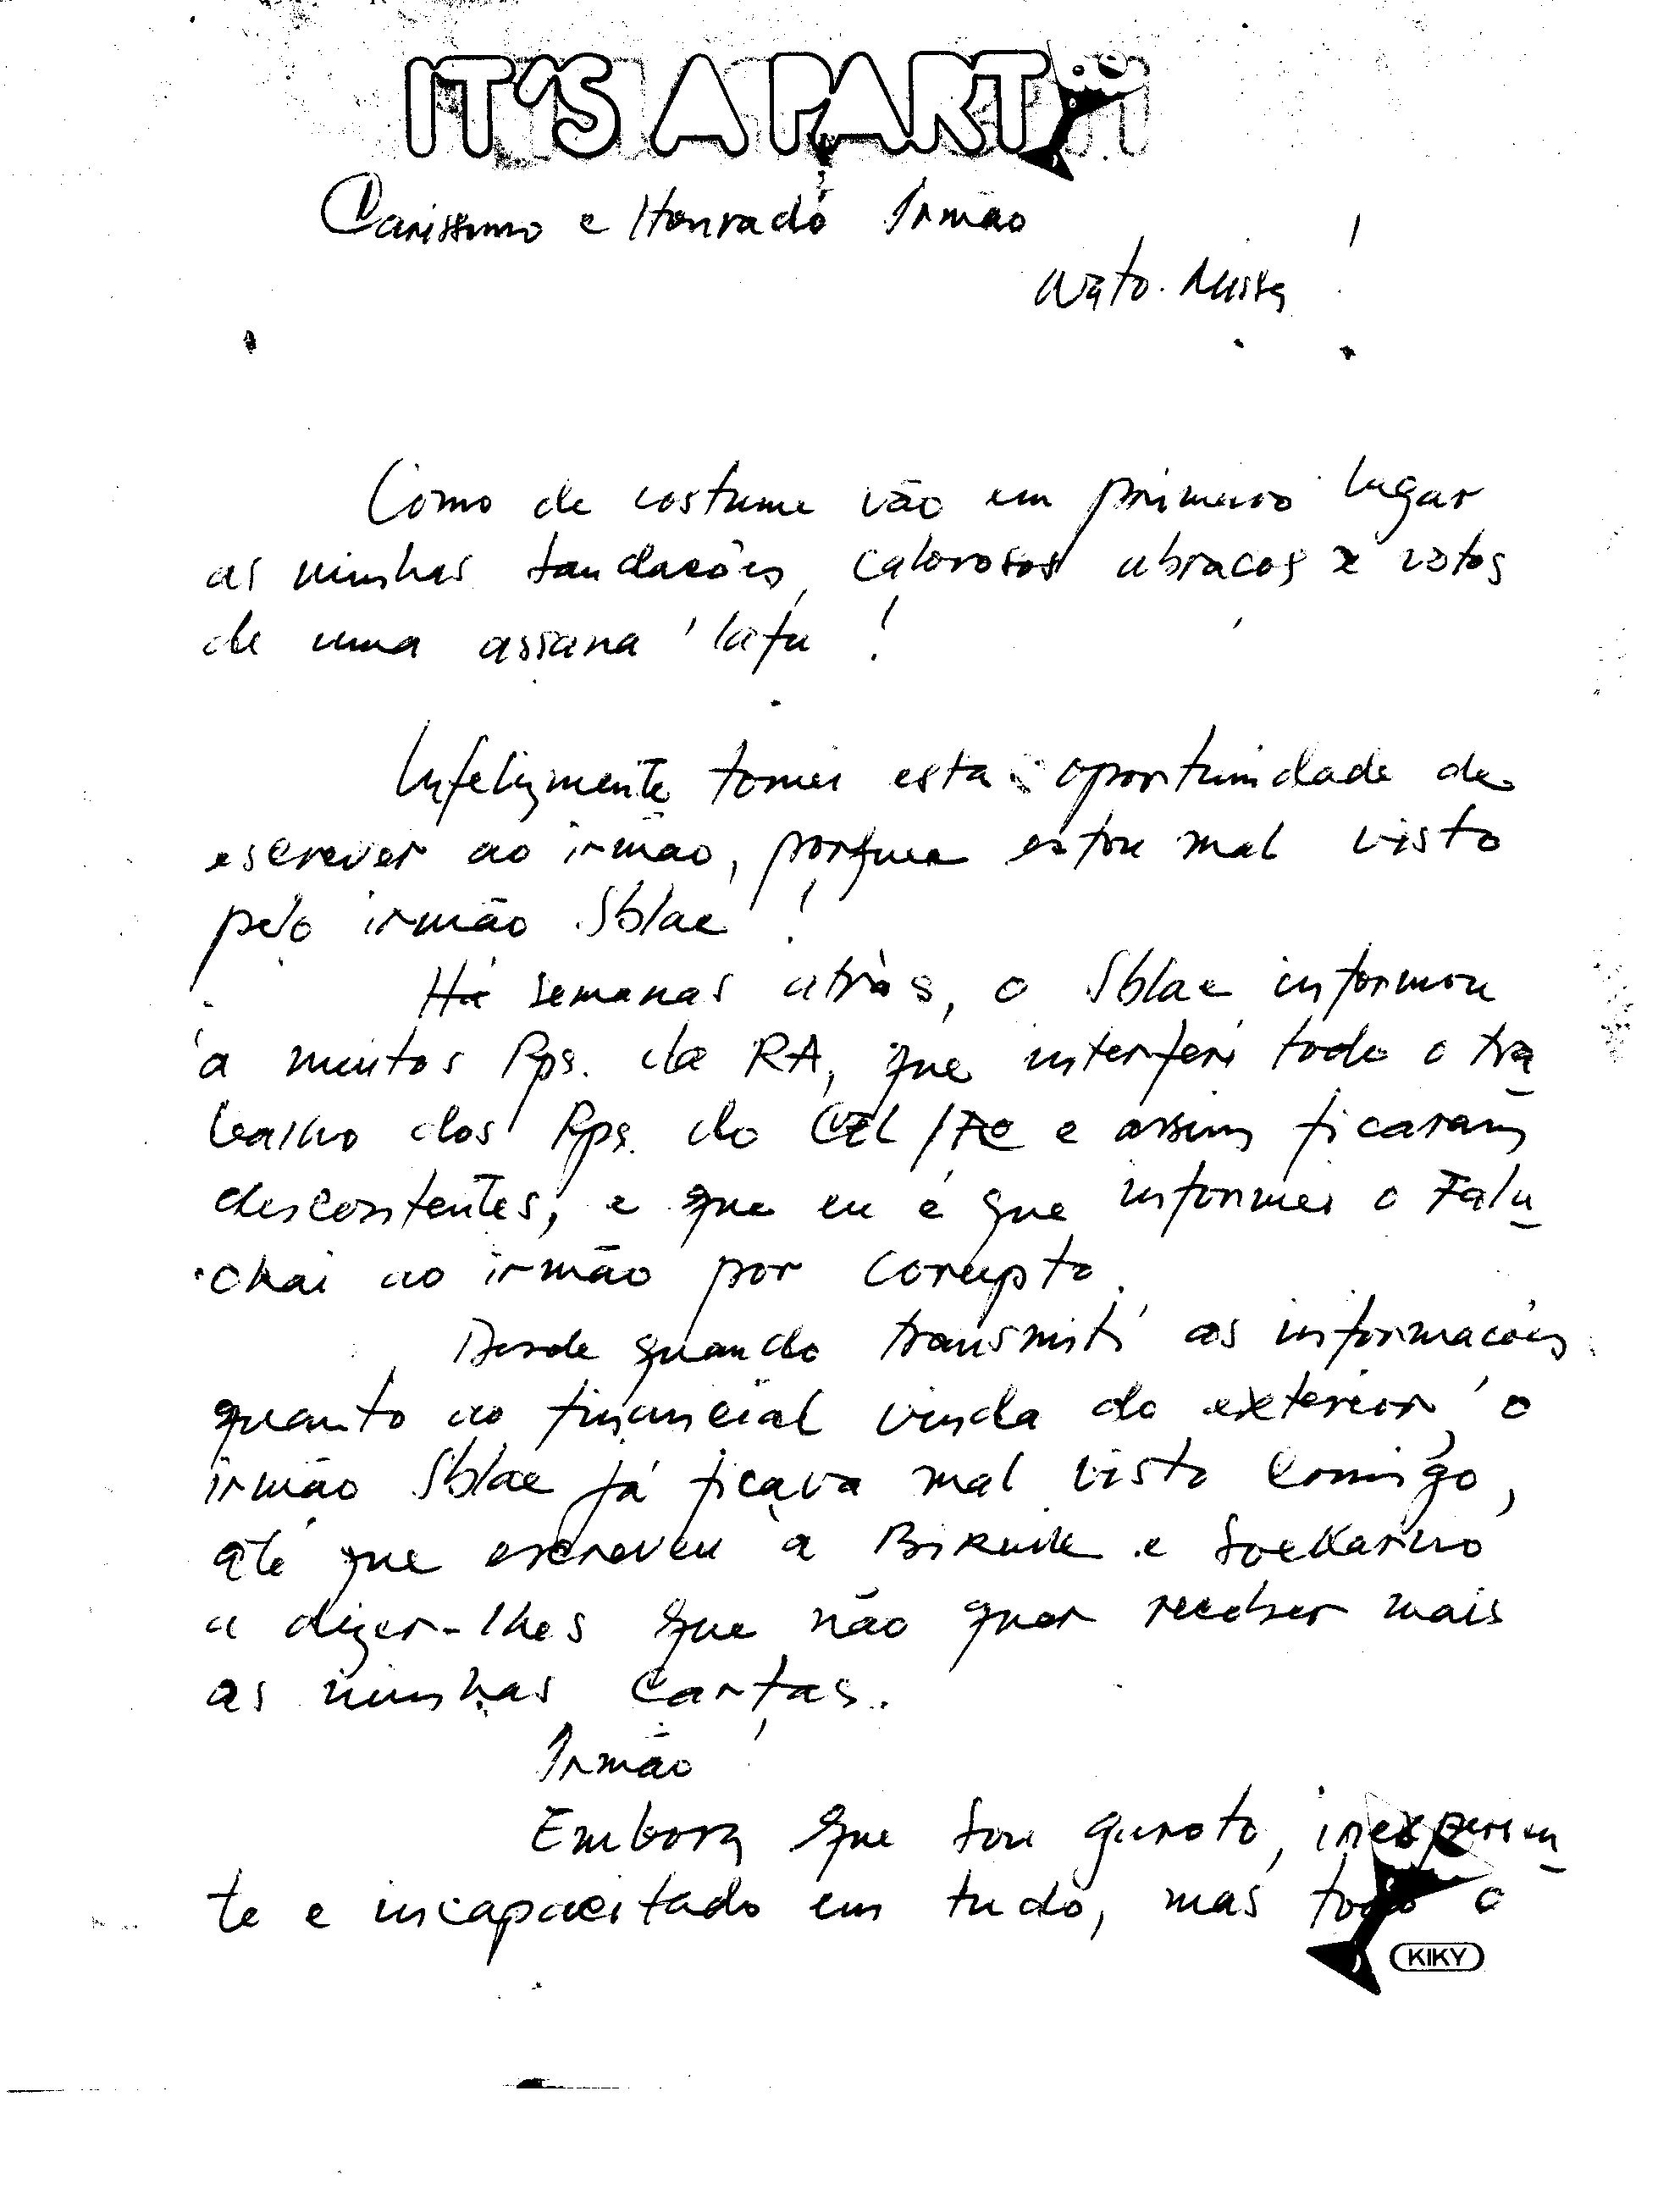 IT'S A PARTY
Carissimo e Honrado Irmão
!
Como de costume vão em primeiro lugar
as minhas saudacões, calorosos abracos e votos
de uma assana' lafu!
Infelizmente tomei esta oportunidade de
escrever ao irmão, porque estou mal visto
pelo irmão Sblae!
Há semanas atràs, o Sblae informou
à muitos Rps. da RA, que interferi todo o tra
balho dos Rps. do CEL/FE e assim ficaram
descontentes, e que eu é que informei o Falu
chai ao irmão por corupto.
Desde quando transmiti as informacões
quanto ao financial vinda do exterior, o
irmão Sblae já ficava mal visto comigo,
até que escreveu a e Soekarno
a dizer-lhes que não quer receber mais
as minhas cartas.
Irmão!
Embora que sou garoto, inexperien
te e incapacitado em tudo, mas todo o
KIKY